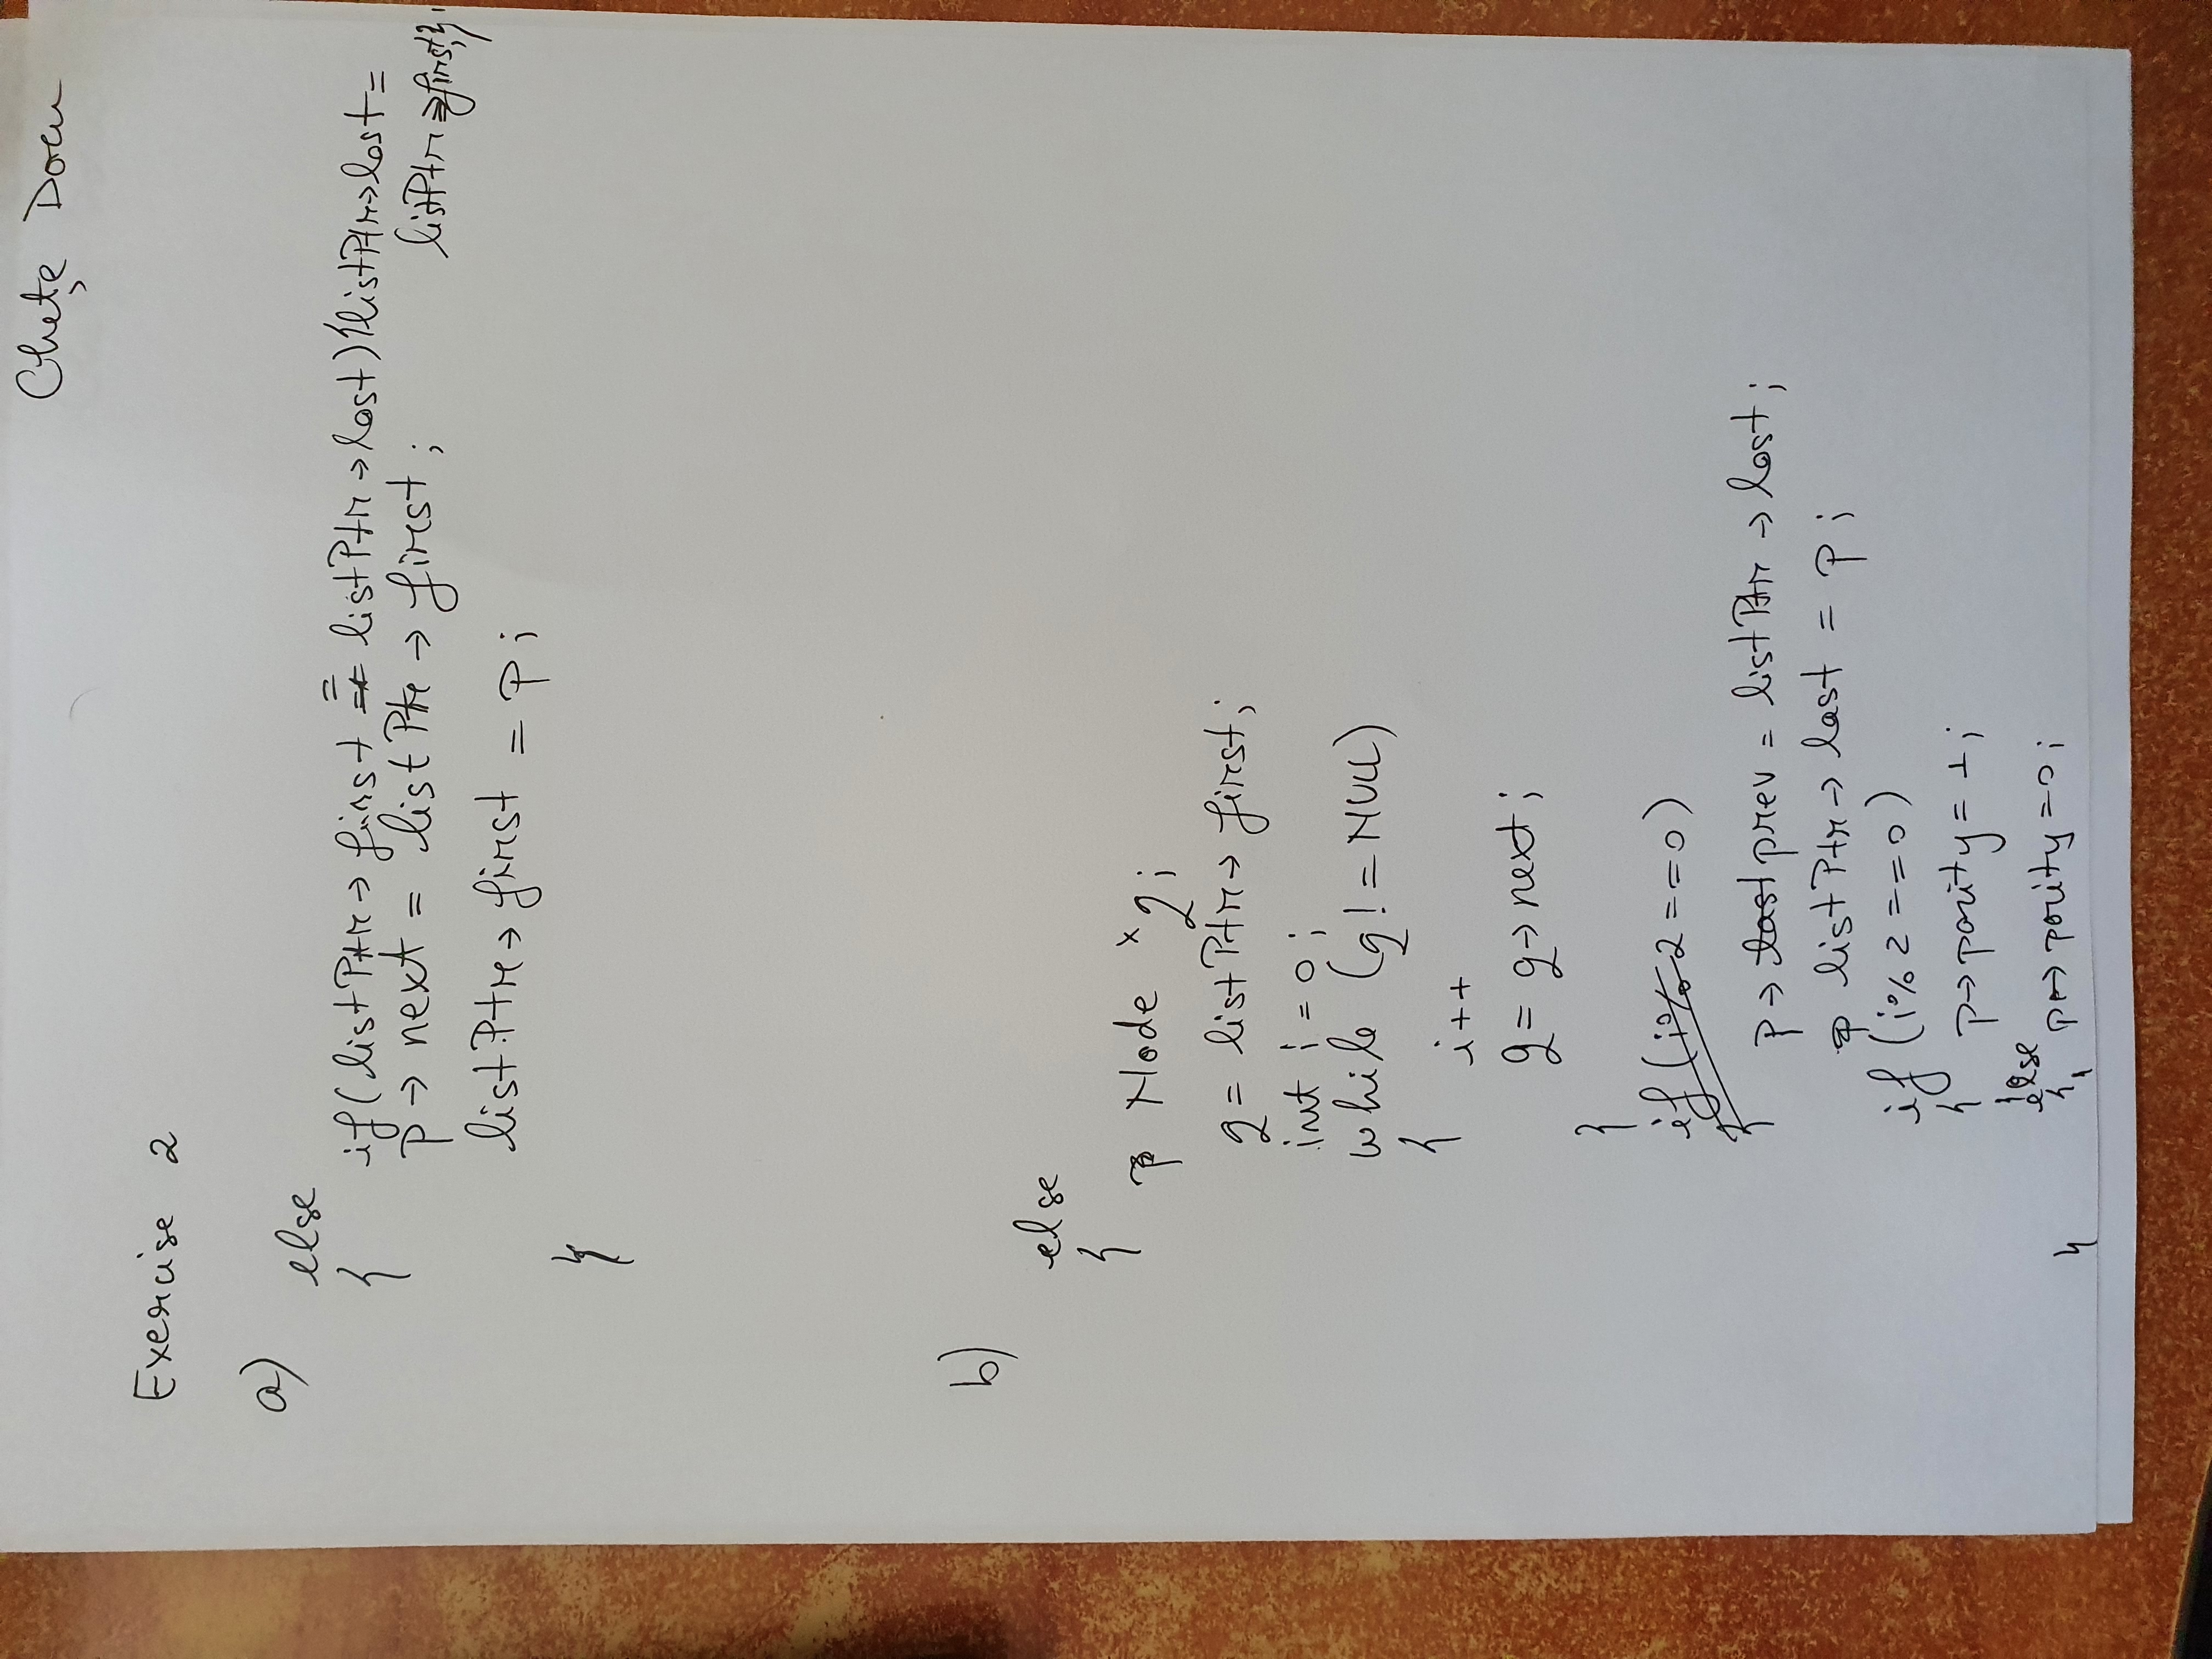 Chețe Doru
Exercise 2
a)
else
{ if(listPtr→first == listPtr→last){listPtr→last=
p→next = listPtr→first; listPtr→first;}
listPtr→first = p;
}
b)
else
{
Node *q;
q = listPtr→first;
int i = 0;
while (q!=NULL)
{ i++
q = q→next;
}
if(i%2==0)
{
p→last prev = listPtr→last;
listPtr→last = p;
if (i%2==0)
{ p→parity=1;
}else
{ p→parity=0;
}
}